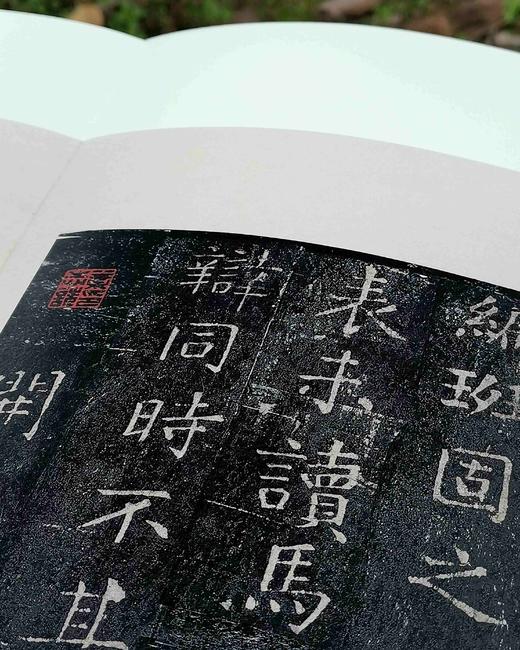 班固之
表未讀馬
辯同時不